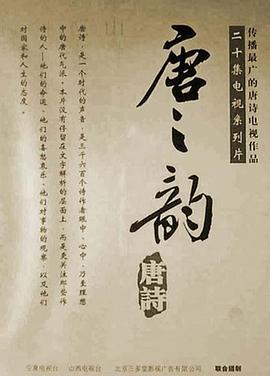 传播最广的唐诗电视作品
二十集电视系列片
唐之韵
唐詩
唐诗,是一个时代的声音,是三千六百个诗作者眼中、心中,乃至理想
中的唐代气派。本片没有停留在文字解析的层面上,而是更关注那些作
诗的人——他们的命运、他们的喜怒哀乐、他们对事物的观察,以及他们
对国家和人生的态度。
宁夏电视台 山西电视台 北京三多堂影视广告有限公司 联合摄制